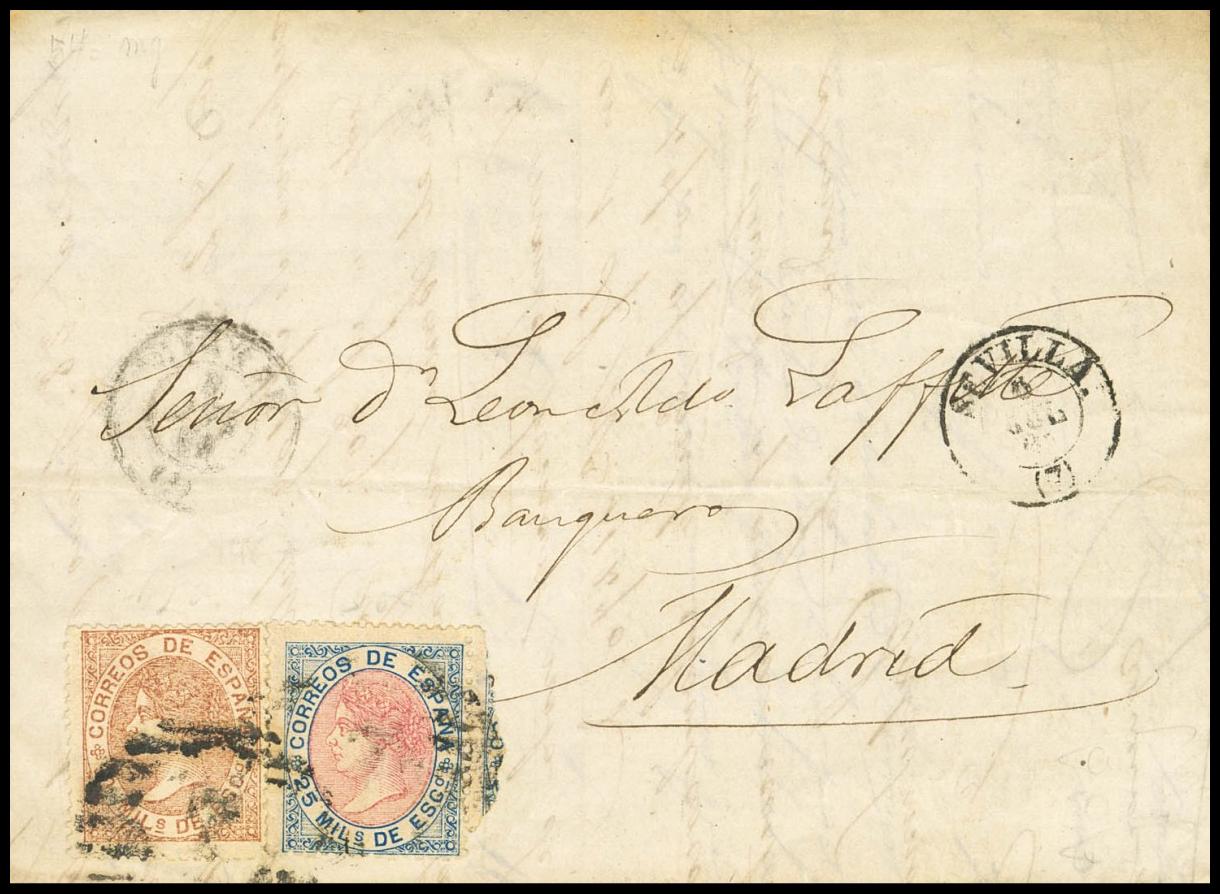 Señor Dn Leonardo Laffitte
SEVILLA
Banquero
Madrid
CORREOS DE ESPAÑA
MILs DE
CORREOS DE ESPAÑA
25 MILs DE ESCo